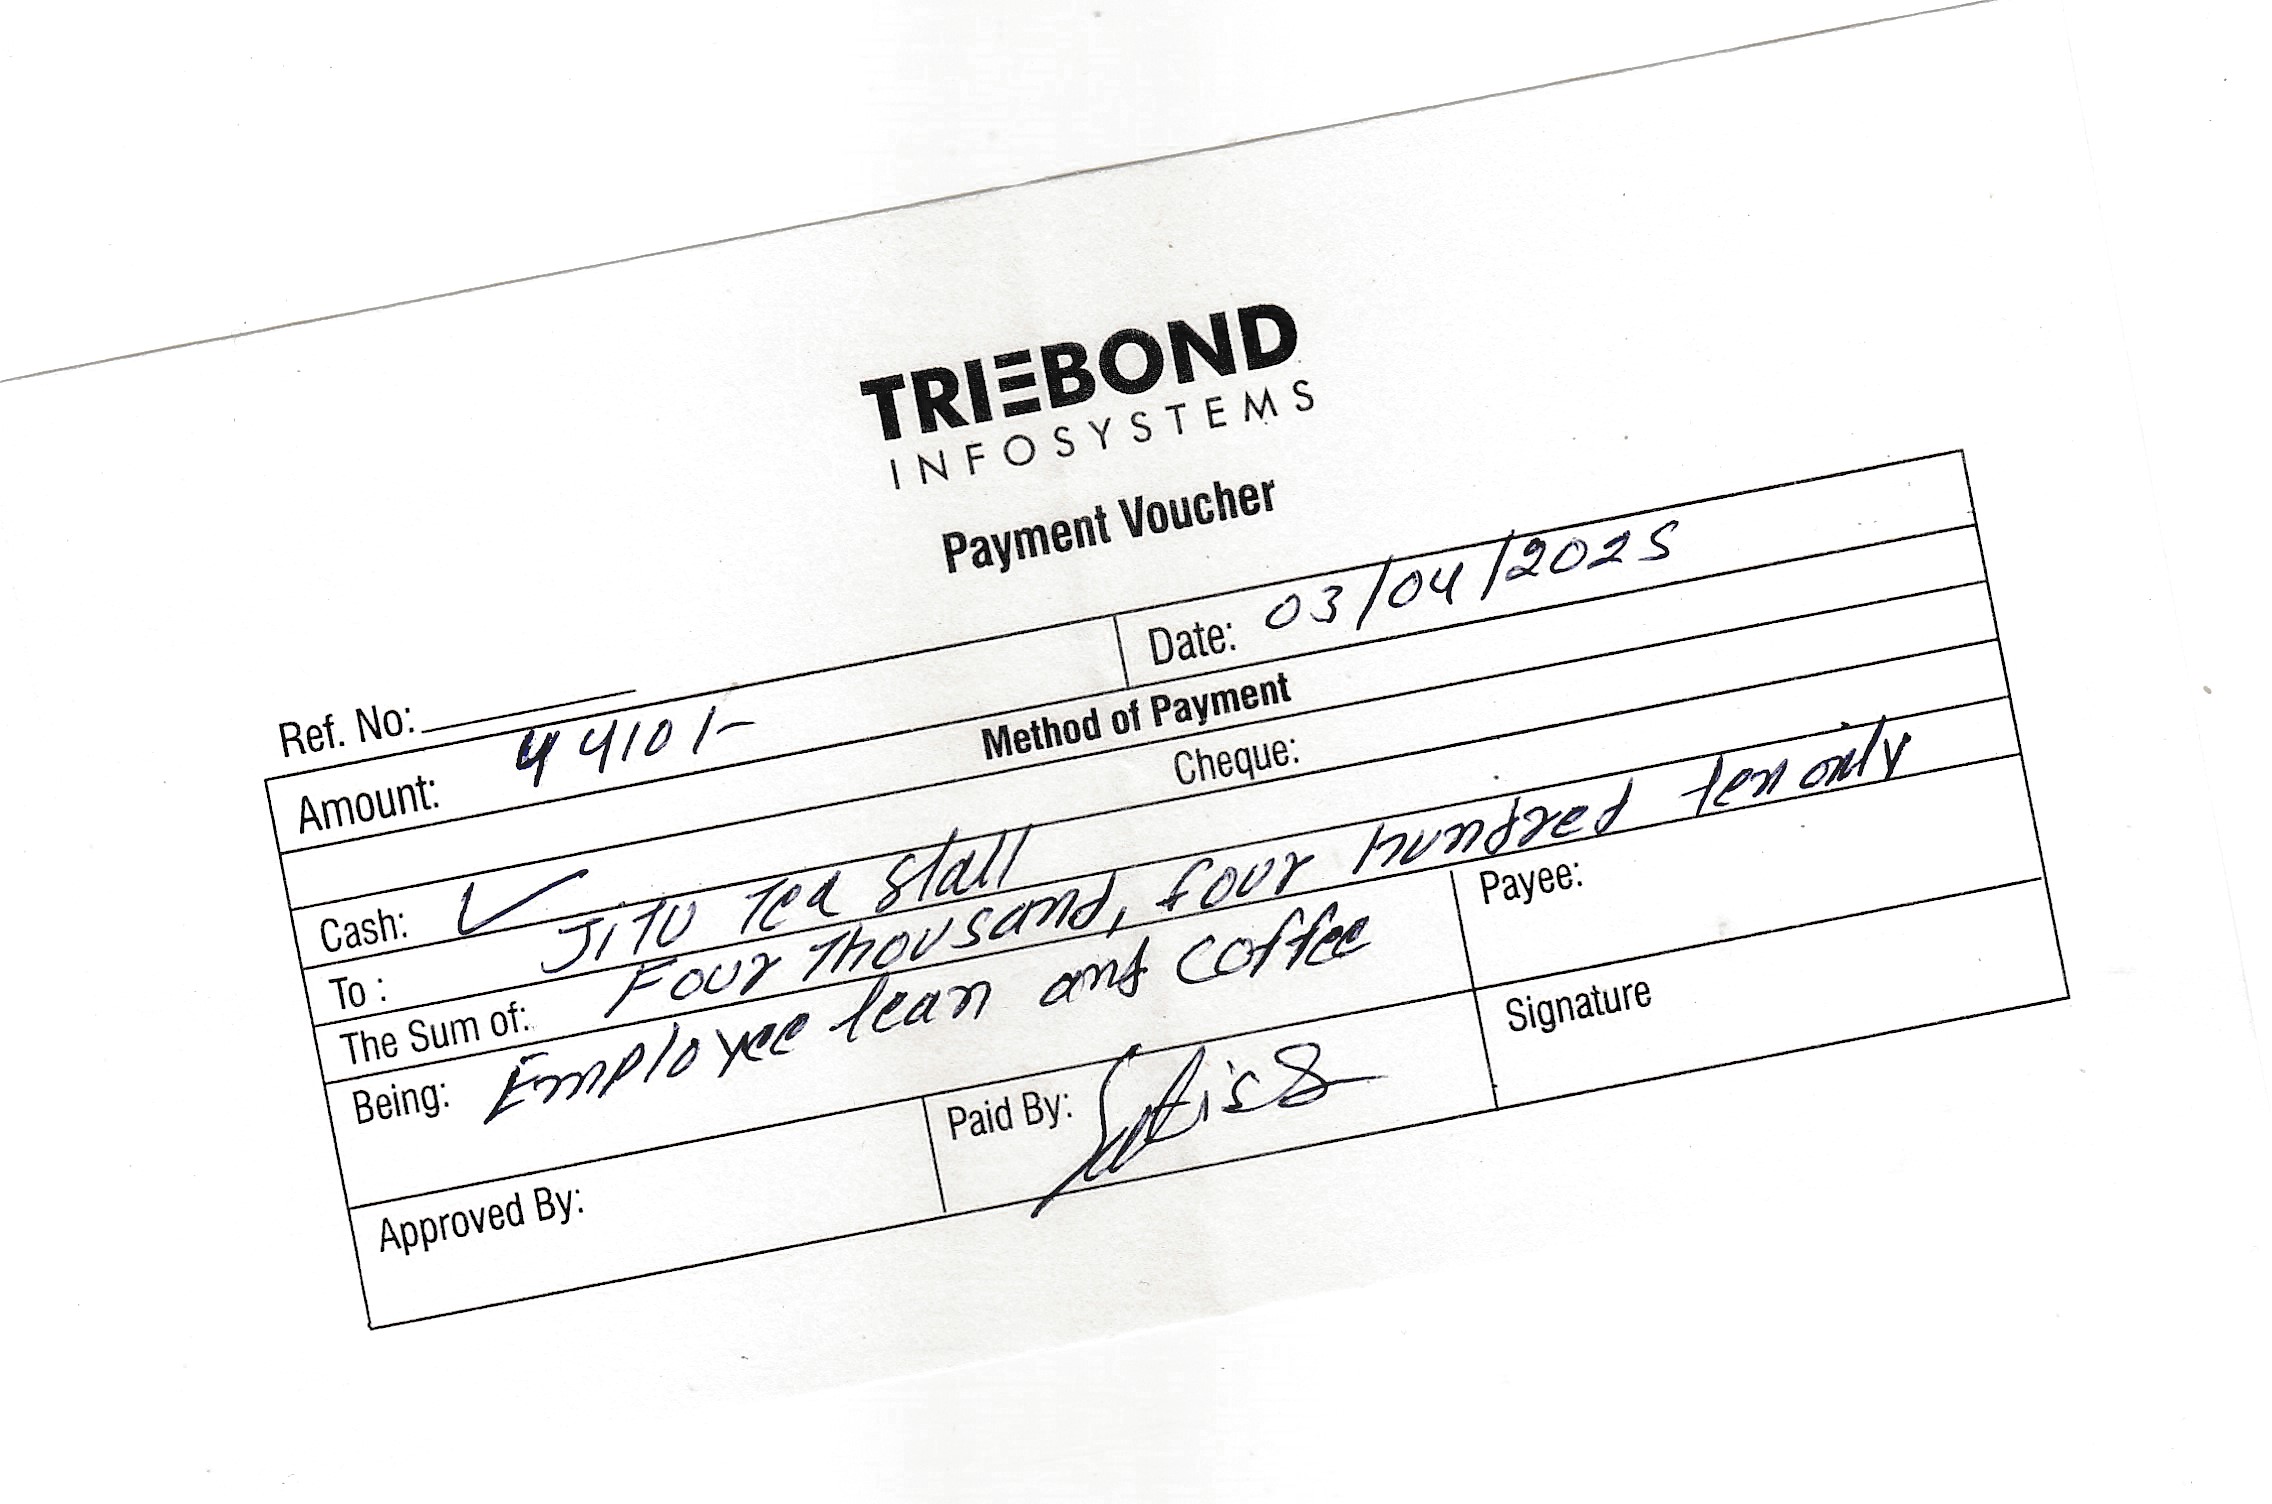 TRIEBOND
INFOSYSTEMS
Payment Voucher
Ref. No:
Amount: 4410/- Date: 03/04/2025
Method of Payment
Cash: ✓ Cheque:
To : JiTU Tea Stall
The Sum of: Four Thousand, four hundred ten only
Being: Employee tean and coffee
Payee:
Approved By: Paid By: Signature